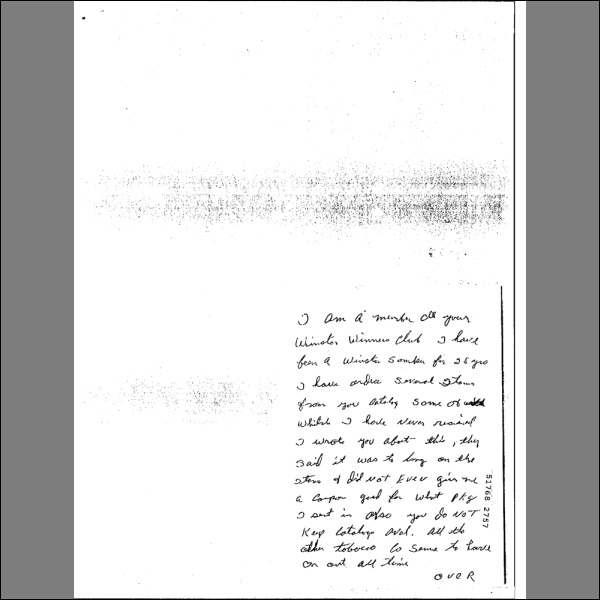 I am a member of your
Winston Winners Club I have
been a Winston Somker for 28 yrs
I have ordee Several Items
from you catalog some of
which I have never received
I wrote you about this, they
said it was to long on the
items I did NOT EVEN give me
a coupon good for what pkg
I sent in also you do NOT
Keep Catalogs Aval. All the
other tobacco Co Seme to have
on out all time
OVER
51768 2757